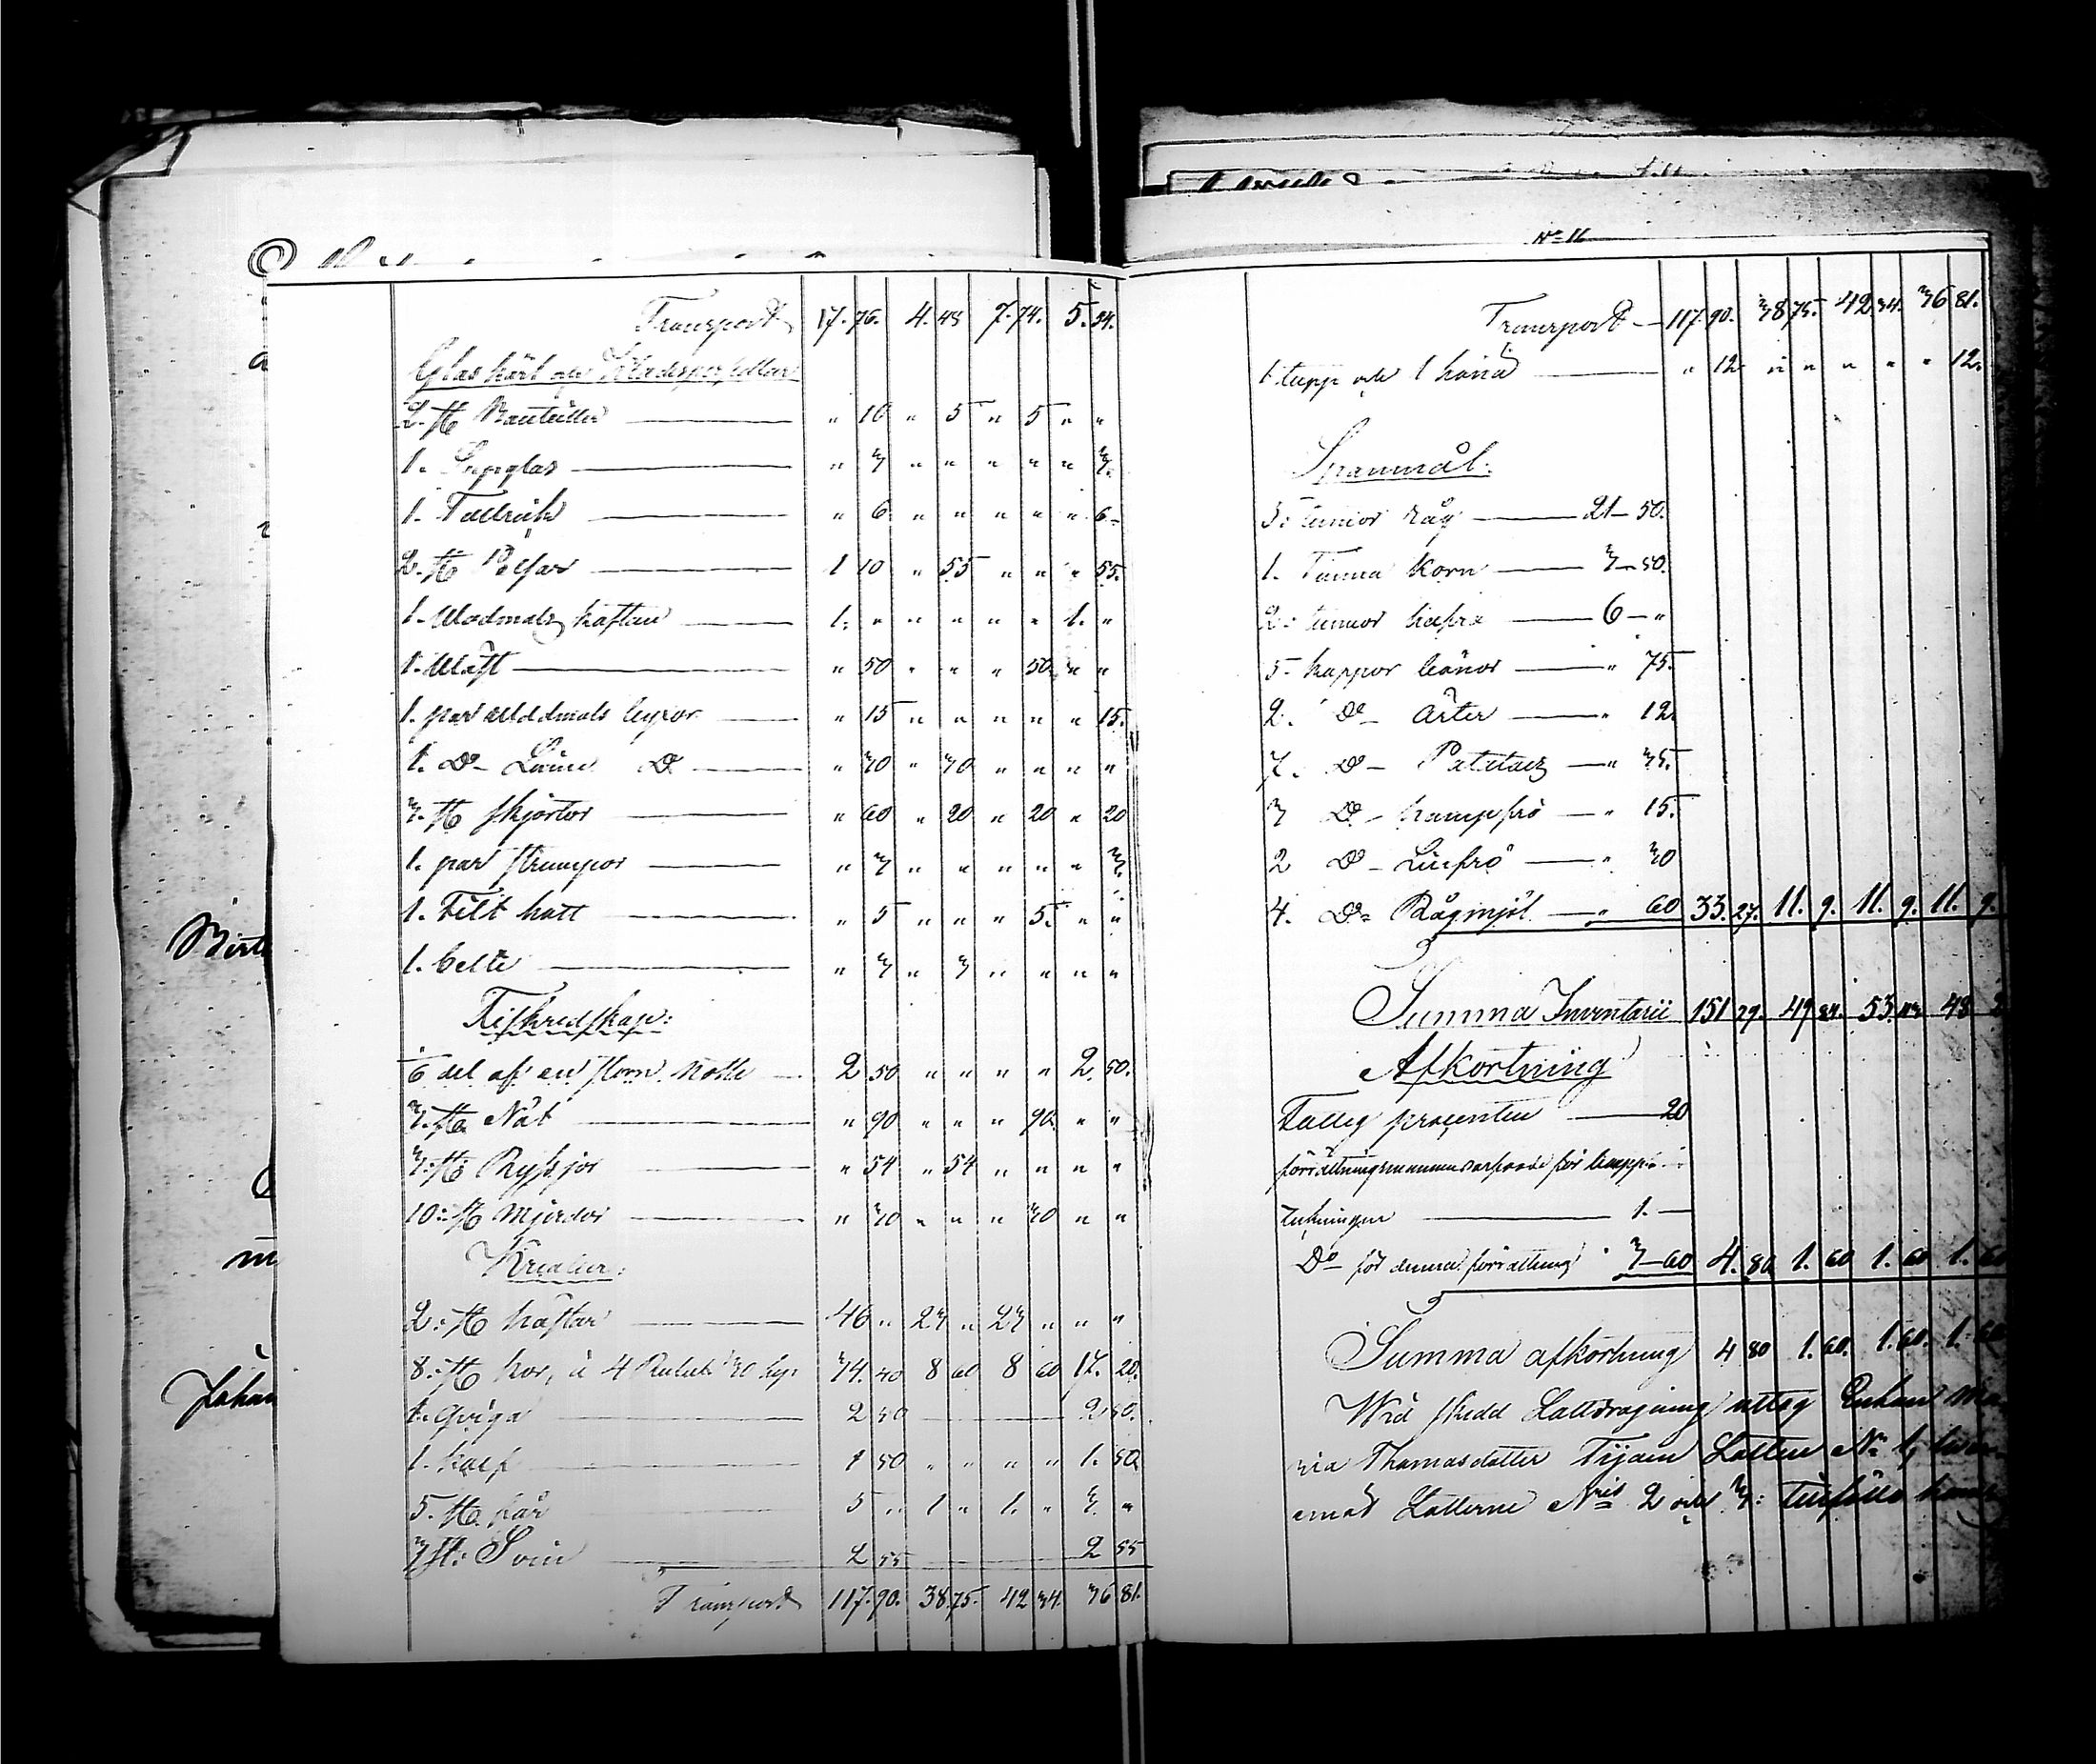 Transport 17. 76. 4. 48 7. 74. 5. 54.
Glas kärl och Klädespersedlar
2. st. Bouteiller — " 10 " 5 " 5 " "
1. Supglas — " 3 " " " " " 3.
1. Tallrick — " 6 " " " " " 6
2. st. Pelsar — 1 10 " 55 " " " 55.
1. Wadmals kaftan — 1. " " " " " 1. "
1. Wäst — " 50 " " " 50 " "
1. par wadmals byxor — " 15 " " " " " 15.
1. Do Linne Do — " 30 " 30 " " " "
3. st skjortor — " 60 " 20 " 20 " 20
1. par strumpor — " 3 " " " " " 3.
1. Filt hatt — " 5 " " " 5. " "
1. bälte — " 3 " 3 " " " "
Fiskredskap:
1/6 del af en storn. Notte — 2 50 " " " " 2. 50.
3. st. Nät — " 90 " " " 90 " "
3. st. Ryssjor — " 54 " 54 " " " "
10. st Mjerdor — " 30 " " " 30 " "
Kreatur:
2. st hästar — 46 " 23 " 23 " " "
8. st kor, à 4 Rubel 30 kop. 34. 40 8 60 8 60 17. 20.
1. Qviga — 2 50 — 2 50.
1. kalf — 1 50 " " " " 1. 50
5. st. får 5 " 1 " 1. " 3 "
3 st. Svin 2 55 — 2 55
Transport 117. 90. 38 75. 42 34. 36 81.
No 16
Transport — 117. 90. 38 75. 42 34. 36 81.
1 tupp och 1 höna — " 12 " " " " " 12.
Spanmål:
3: tunnor råg — 21 — 50.
1. Tunna korn — 3 — 50.
2: tunnor hafra — 6 — "
5. kappor bönor — " 75.
2. Do Ärter — " 12
7. Do — Potatoes — " 35.
3 Do — hampfrö — " 15.
2 Do — Linfrö — " 30
4. Do Rågmjöl — " 60 33. 27. 11. 9. 11. 9. 11. 9.
Summa Inventarii 151 29. 49 84. 53. 43 48
Afkortning
Fattig procenten — 20
förrättningsmannens arfvode för
tekningen — 1. —
Do för denna förrättning " 3 — 60 4. 80 1. 60 1. 60 1. 60
Summa afkortning 4 80 1. 60. 1. 60. 1. 60
Wid skedd Lottdragning uttog Enkan Ma-
ria Thomasdotter Tijain Lotten No 1,
emot Lotterne Nris 2 och 3: tillföllo